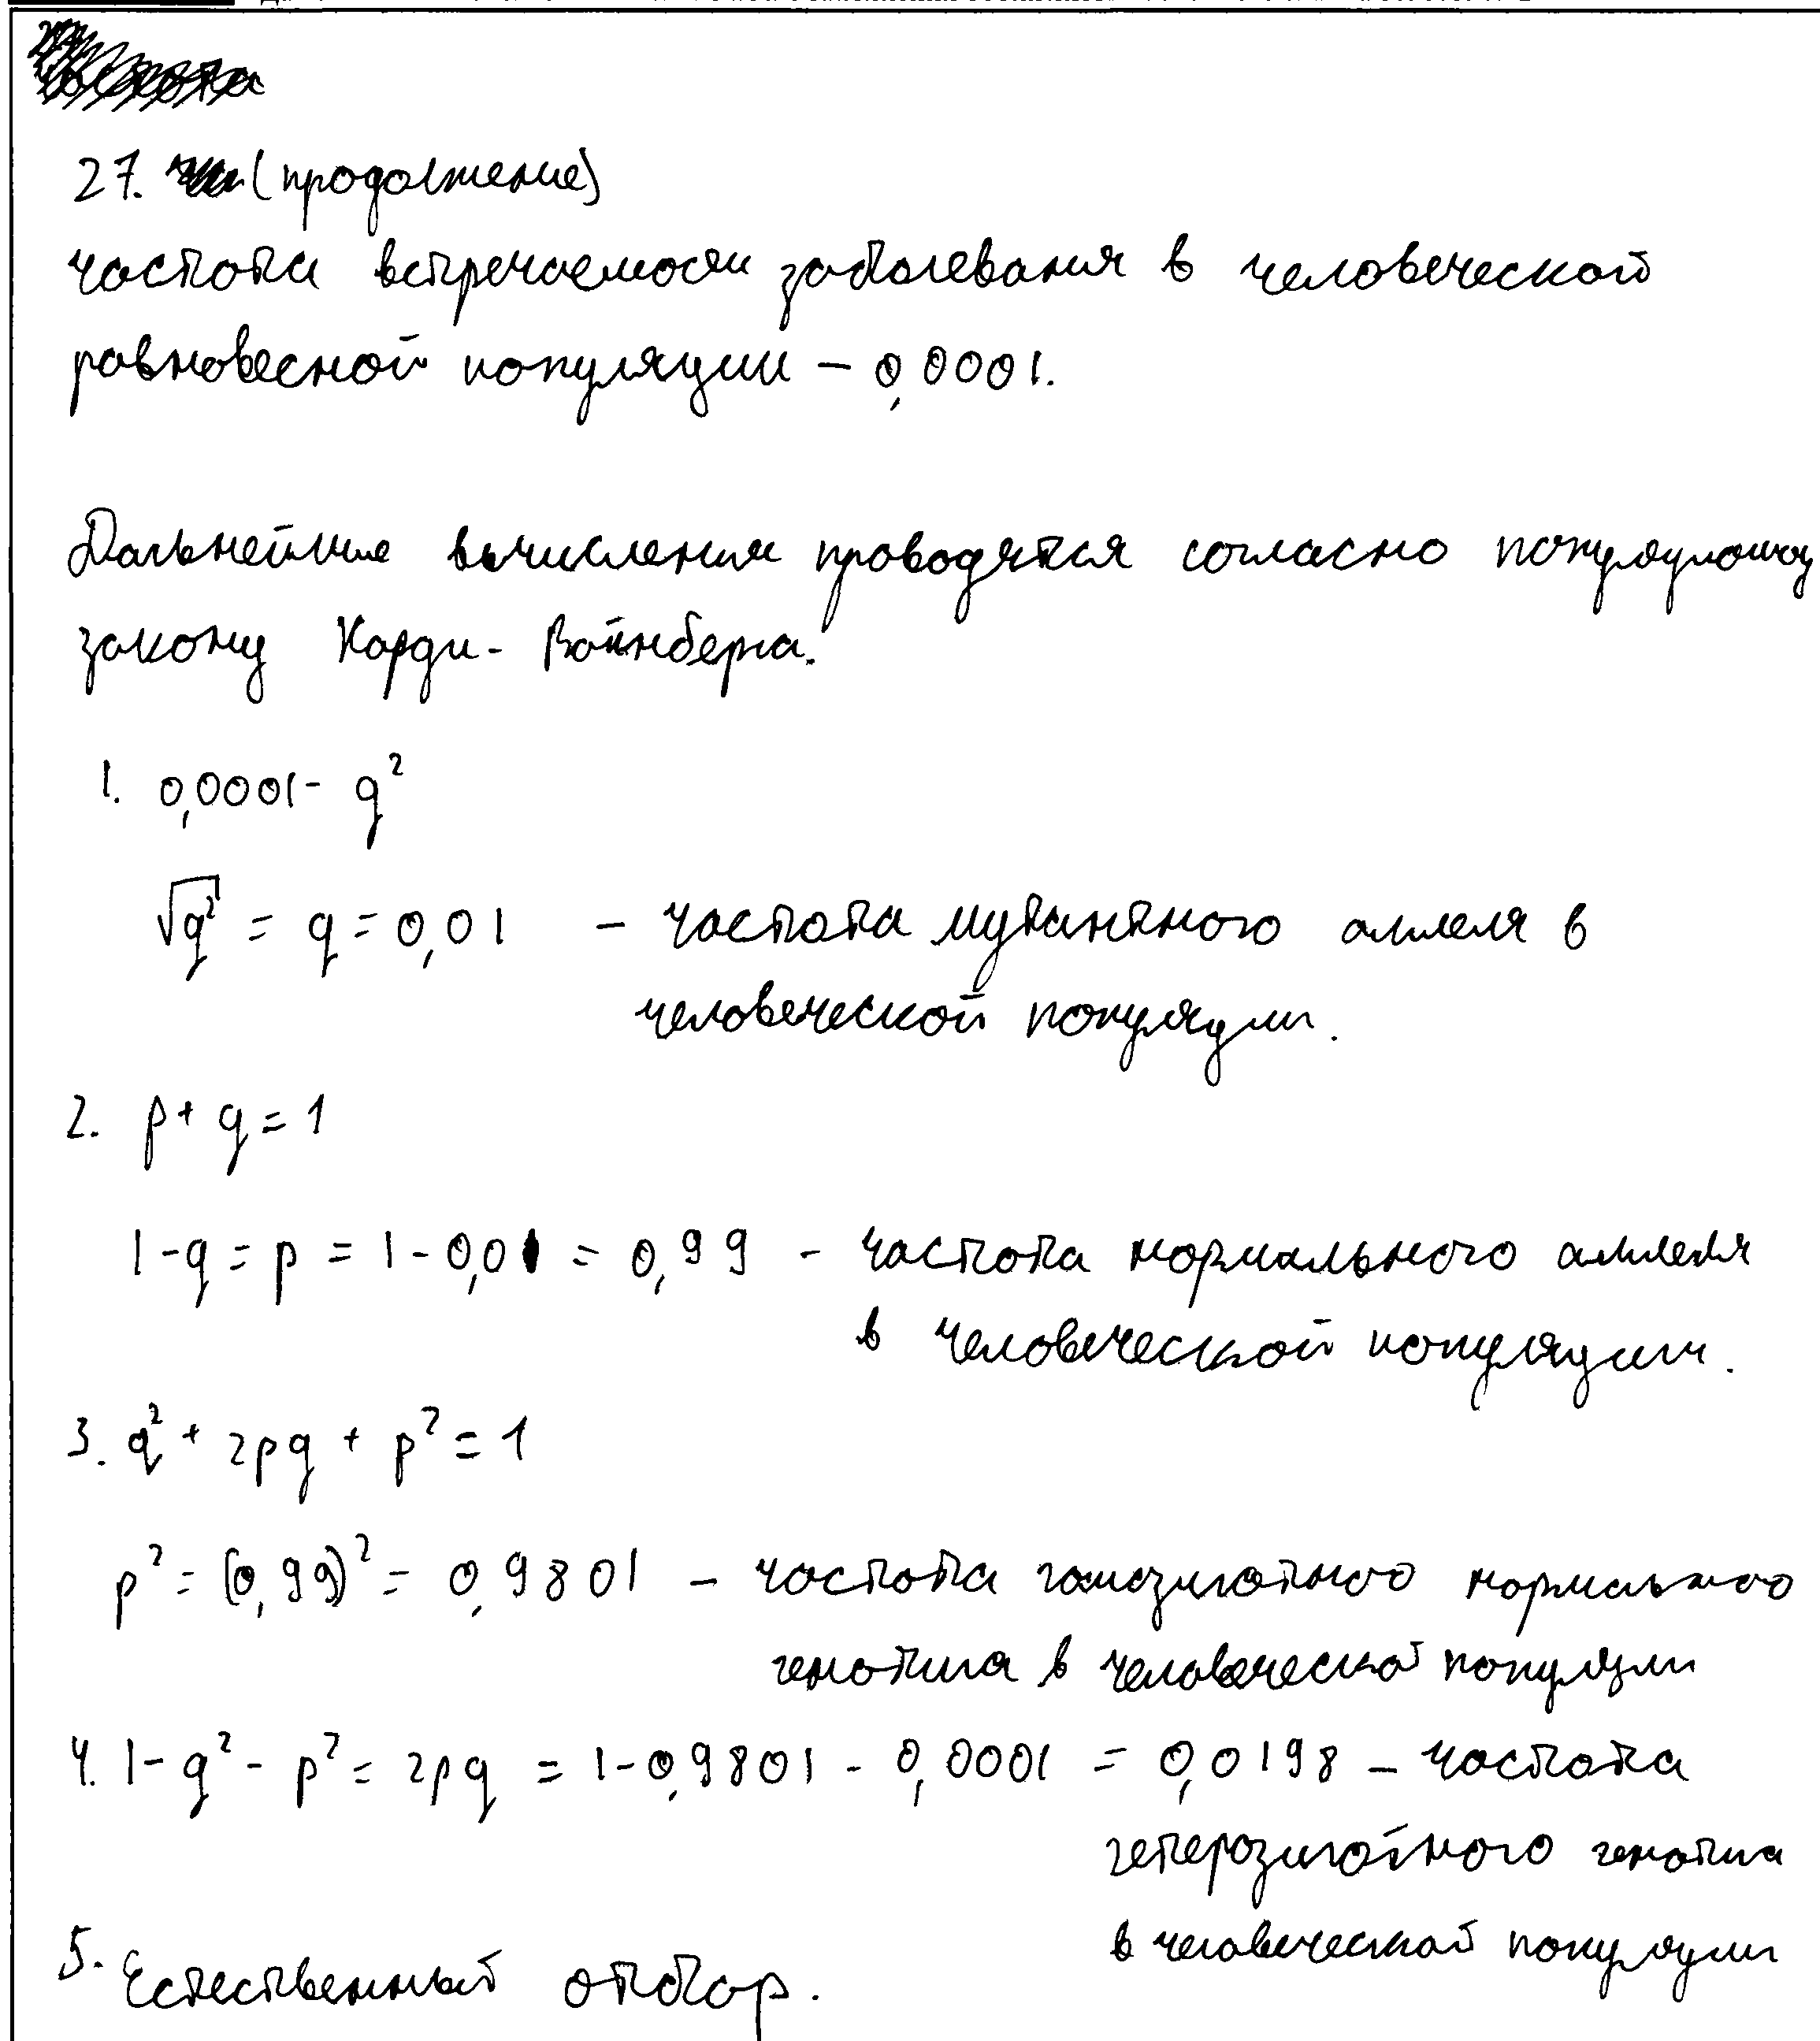 27. (продолжение)
частота встречаемости заболевания в человеческой
равновесной популяции – 0,0001.
Дальнейшие вычисления проводятся согласно
закону Харди - Вайнберга.
1. 0,0001 - q²
√q² = q = 0,01 – частота мутантного аллеля в
человеческой популяции.
2. p + q = 1
1 - q = p = 1 - 0,01 = 0,99 - частота нормального аллеля
в человеческой популяции.
3. q² + 2pq + p² = 1
p² = (0,99)² = 0,9801 – частота гомозиготного нормального
генотипа в человеческой популяции
4. 1 - q² - p² = 2pq = 1 - 0,9801 - 0,0001 = 0,0198 – частота
гетерозиготного генотипа
в человеческой популяции
5. Естественный отбор.